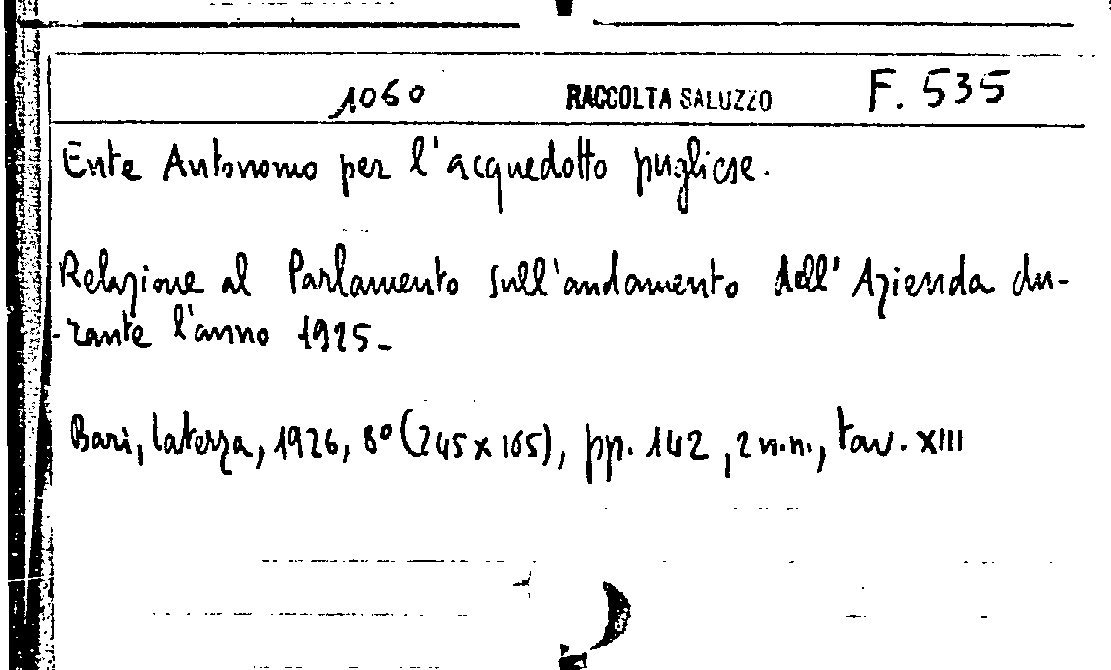 1060 RACCOLTA SALUZZO F. 535
Ente Autonomo per l'acquedotto pugliese.
Relazione al Parlamento sull'andamento dell'Azienda du-
-rante l'anno 1925-
Bari, Laterza, 1926, 8º (245x165), pp. 142, 2 n.n., tav. XIII